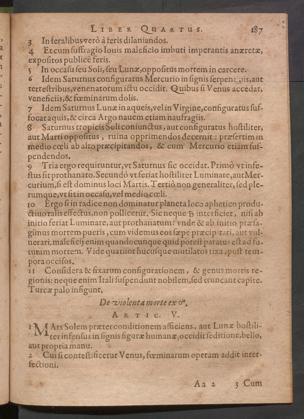 LIBER QUARTUS. 187
3 In feralibus verò à feris dilaniandos.
4 Et cum suffragio Iouis maleficio imbuti imperantis anæretæ,
expositos publice feris.
5 In occasu seu Soli, seu Lunæ, oppositus mortem in carcere.
6 Idem Saturnus configuratus Mercurio in signis serpen aut
terrestribus, venenatorum ictu occidit. Quibus si Venus accedat,
veneficiis, & fœminarum dolis.
7 Idem Saturnus Lunæ in aqueis, vel in Virgine, configuratus suf-
focat aquis, & circa Argo nauem etiam naufragiis.
8 Saturnus tropicis Soli coniunctus, aut configuratus hostiliter,
aut Marti oppositus, ruina opprimendos decernit: præsertim in
medio cœli ab alto præcipitandos, & cum Mercurio etiam su-
spendendos.
9 Tria ergo requiruntur, vt Saturnus sic occidat. Primò vt infe-
stus sit prothanato. Secundò vt feriat hostiliter Luminare, aut Mer-
curium, si est dominus loci Martis. Tertiò non generaliter, sed ple-
rumque, vt sit in occasu, vel medio cœli.
10 Ergo si in radice non dominatur planeta loco aphetico produ-
ctiuo talis effectus, non pollicetur. Sic neque interficiet, nisi ab
initio feriat Luminare, aut prothanatum: vnde & ab initio præsa-
gimus mortem pueris, cum videmus eos sæpe præcipitari, aut vul-
nerari, maleficis enim quandocunque quid poterit paratus est ad fu-
turam mortem. Vide quatuor huiusque mutilatos post tem-
pora occisos.
11 Considera & fixarum configurationem, & genus mortis re-
gionis: neque enim Itali suspendunt nobilem, sed truncant capite.
Turcæ palo infigunt.
De violenta morte ex ♂.
ARTIC. V.
1 MArs Solem præter conditionem afficiens, aut Lunæ hostili-
ter infensus in signis figuræ humanæ, occidit seditione, bello,
aut propria manu.
2 Cui si confestisicetur Venus, fœminarum operam addit inter-
fectioni.
Aa 2 3 Cum